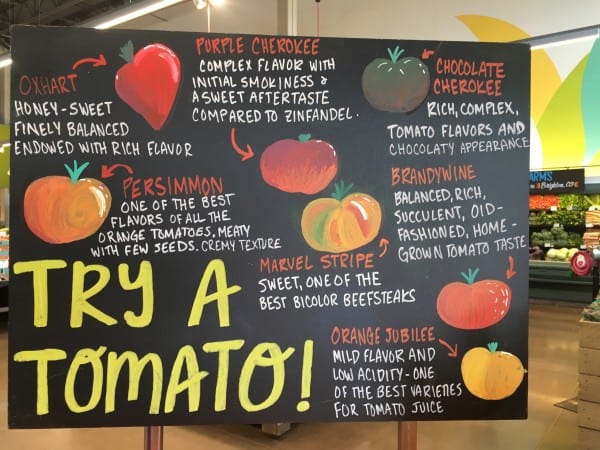 OXHART
HONEY-SWEET
FINELY BALANCED
ENDOWED WITH RICH FLAVOR
PURPLE CHEROKEE
COMPLEX FLAVOR WITH
INITIAL SMOKINESS &
A SWEET AFTERTASTE
COMPARED TO ZINFANDEL.
CHOCOLATE
CHEROKEE
RICH, COMPLEX,
TOMATO FLAVORS AND
CHOCOLATY APPEARANCE
PERSIMMON
ONE OF THE BEST
FLAVORS OF ALL THE
ORANGE TOMATOES, MEATY
WITH FEW SEEDS. CREMY TEXTURE
BRANDYWINE
BALANCED, RICH,
SUCCULENT, OLD-
FASHIONED, HOME-
GROWN TOMATO TASTE
MARVEL STRIPE
SWEET, ONE OF THE
BEST BICOLOR BEEFSTEAKS
ORANGE JUBILEE
MILD FLAVOR AND
LOW ACIDITY - ONE
OF THE BEST VARIETIES
FOR TOMATO JUICE
TRY A
TOMATO!
ARMS
Brighton, CO